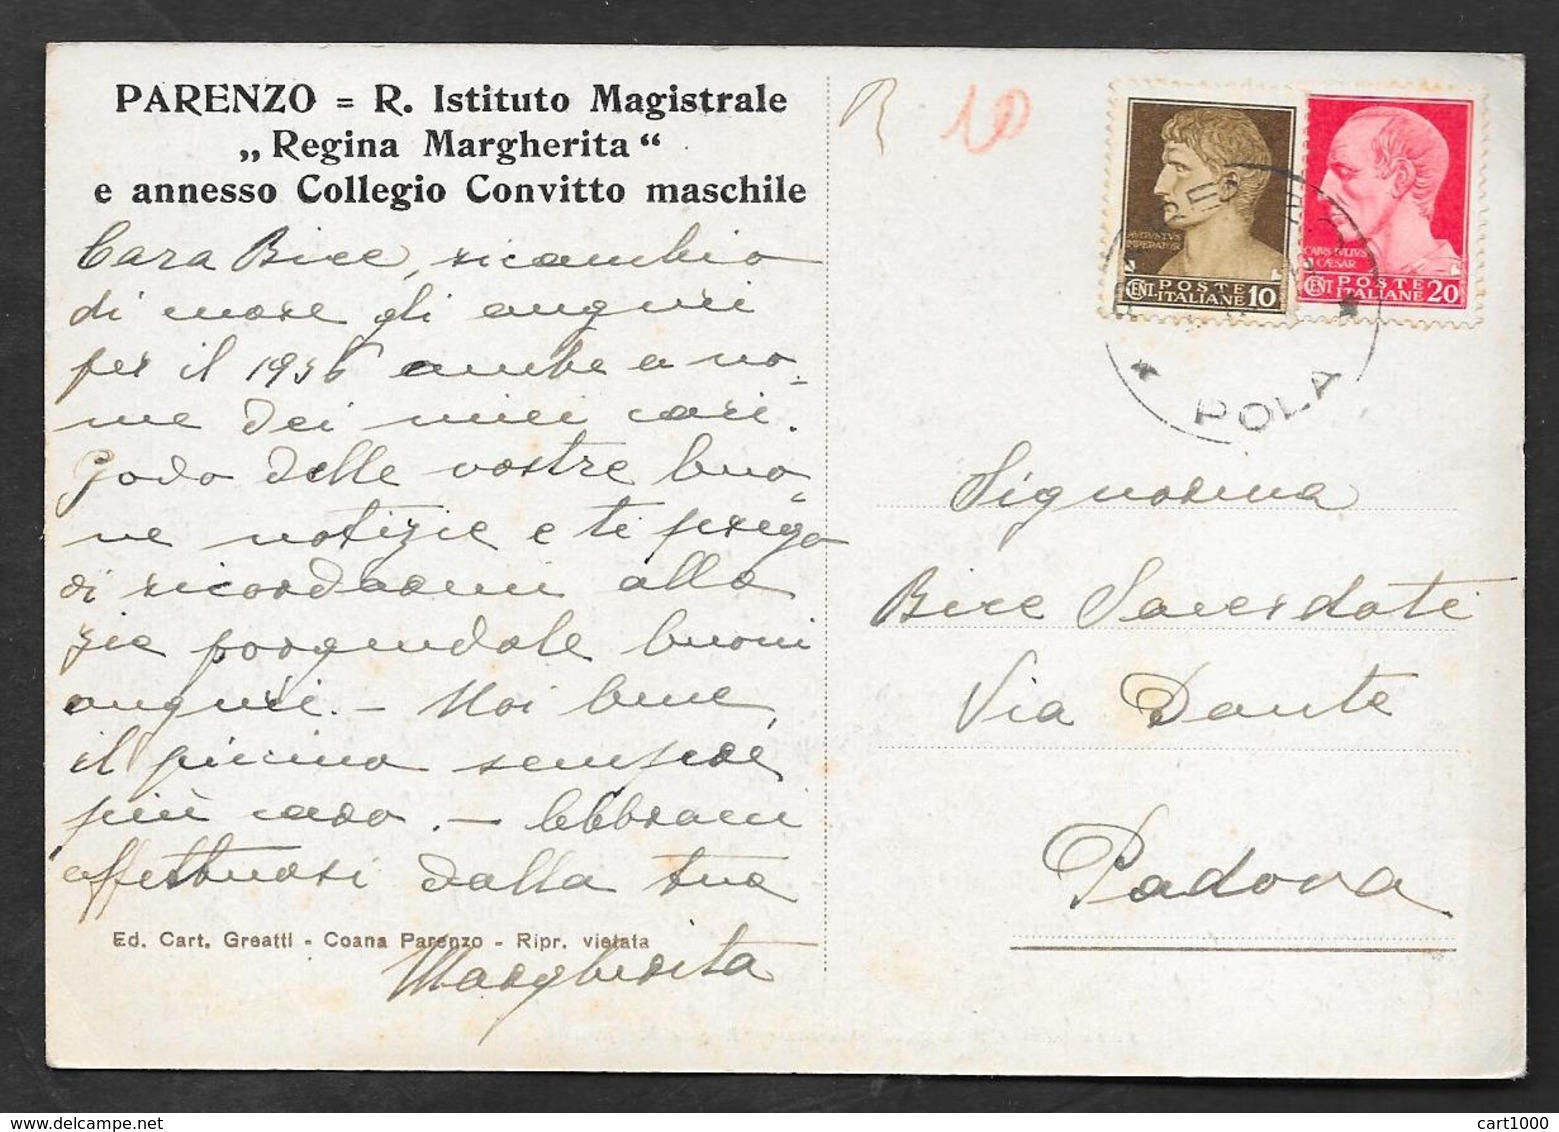 PARENZO = R. Istituto Magistrale
„Regina Margherita“
e annesso Collegio Convitto maschile
Cara Bice, ricambio
di cuore gli auguri
per il 1936 anche a no-
me dei miei cari.
Godo delle vostre buo=
ne notizie e ti prego
di ricordarmi alla
zia porgendole buoni
auguri. - Noi bene,
il piccino sempre
più caro. - Abbracci
affettuosi dalla tua
Ed. Cart. Greatti - Coana Parenzo - Ripr. vietata
Margherita
R 10
AVGVSTVS
IMPERATOR
CENT. POSTE
ITALIANE 10
CAIVS IVLIVS
CÆSAR
CENT. POSTE
ITALIANE 20
* POLA *
Signorina
Bice Sacerdoti
Via Dante
Padova
cart1000